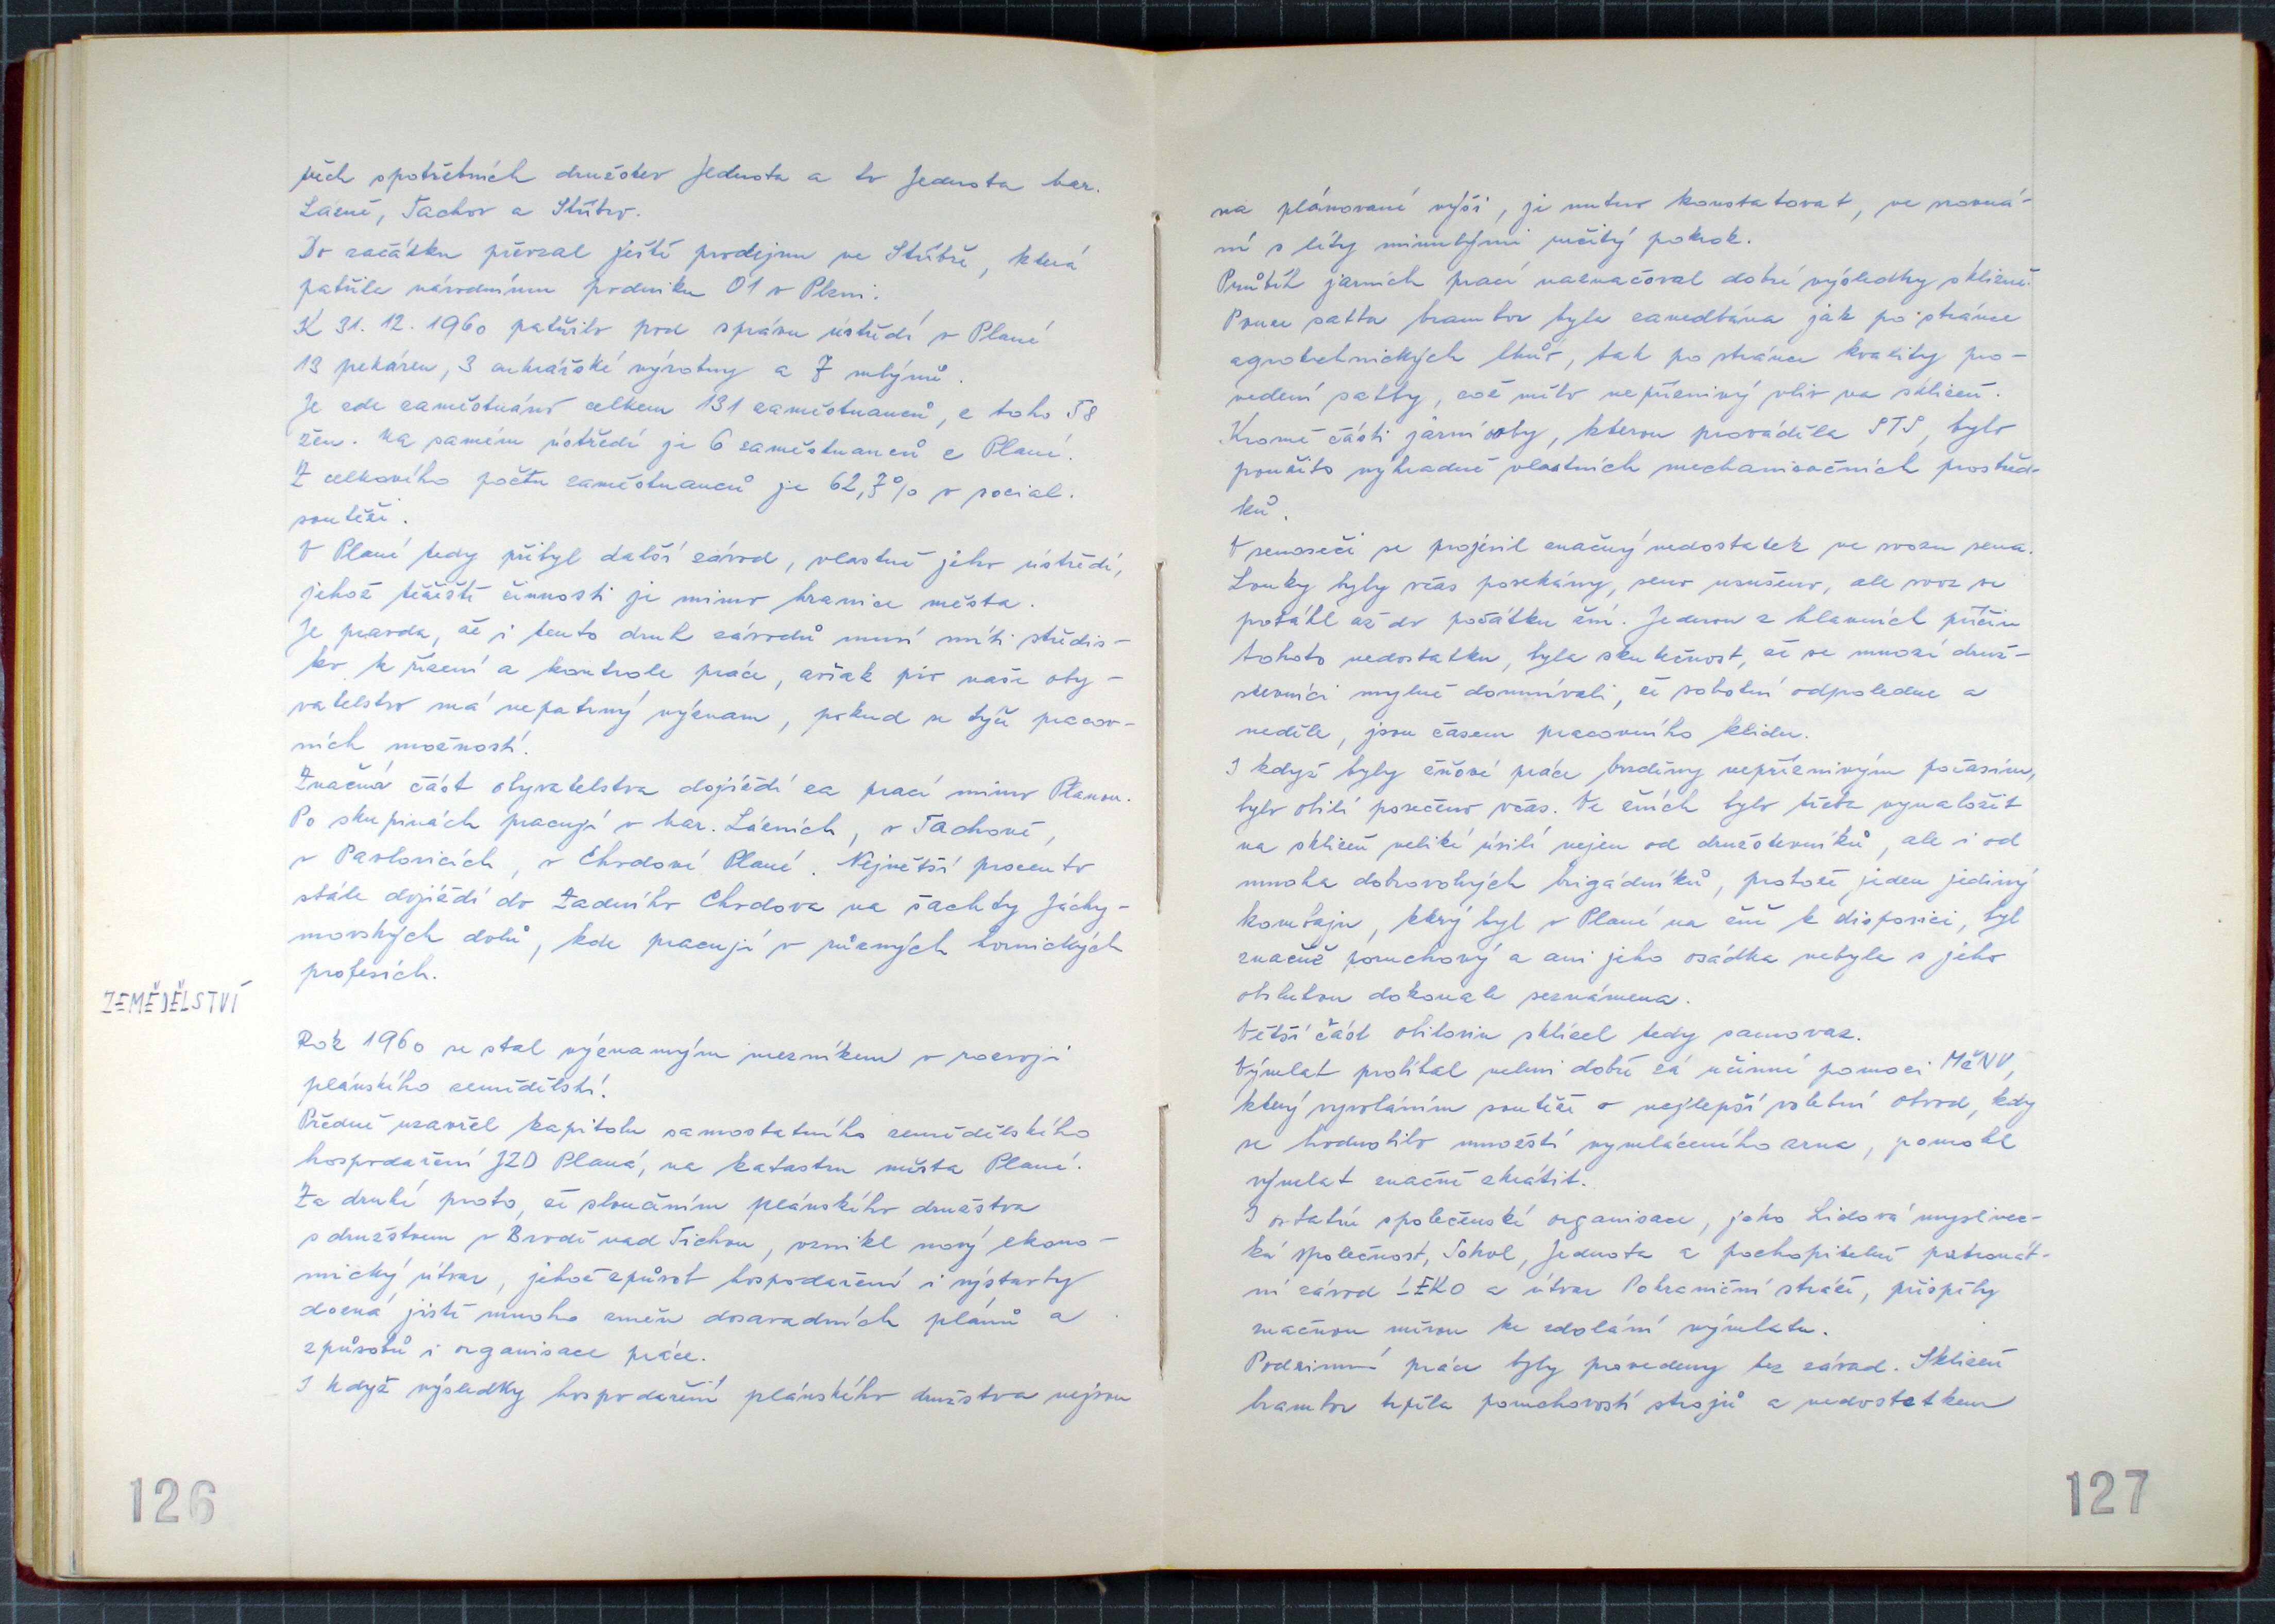 všech spotřebních družstev Jednota a to Jednota Mar.
Lázně, Tachov a Stříbro.
Do začátku převzal ještě prodejnu ve Stříbře, která
patřila národnímu podniku 01 v Plzni.
K 31. 12. 1960 patřilo pod správu ústředí v Plané
13 pekáren, 3 cukrářské výrobny a 7 mlýnů.
Je zde zaměstnáno celkem 131 zaměstnanců, z toho 58
žen. Na samém ústředí je 6 zaměstnanců z Plané.
Z celkového počtu zaměstnanců je 62,7% v social.
soutěži.
V Plané tedy přibyl další závod, vlastně jeho ústředí,
jehož těžiště činnosti je mimo hranice města.
Je pravda, že i tento druh závodů musí míti středis-
ko k řízení a kontrole práce, avšak pro naše oby-
vatelstvo má nepatrný význam, pokud se týče pracov-
ních možností.
Značná část obyvatelstva dojíždí za prací mimo Planou.
Po skupinách pracují v Mar. Lázních, v Tachově,
v Pavlovicích, v Chodové Plané. Největší procento
stále dojíždí do Zadního Chodova na šachty Jáchy-
movských dolů, kde pracují v různých hornických
profesích.
ZEMĚDĚLSTVÍ
Rok 1960 se stal významným mezníkem v rozvoji
plánského zemědělství.
Předně uzavřel kapitolu samostatného zemědělského
hospodaření JZD Planá, na katastru města Plané.
Za druhé proto, že sloučením plánského družstva
s družstvem v Brodě nad Tichou, vznikl nový ekono-
mický útvar, jehož způsob hospodaření i výstavby
dozná jistě mnoho změn dosavadních plánů a
způsobů i organisace práce.
I když výsledky hospodaření plánského družstva nejsou
126
na plánované výši, je nutno konstatovat, ve srovná-
ní s léty minulými určitý pokrok.
Průběh jarních prací naznačoval dobré výsledky sklizně.
Pouze sadba brambor byla zanedbána jak po stránce
agrotechnických lhůt, tak po stránce kvality pro-
vedení sadby, což mělo nepříznivý vliv na sklizeň.
Kromě části jarní orby, kterou prováděla STS, bylo
použito výhradně vlastních mechanisačních prostřed-
ků.
V senoseči se projevil značný nedostatek ve svozu sena.
Louky byly včas posekány, seno usušeno, ale svoz se
potáhl až do počátku žní. Jednou z hlavních příčin
tohoto nedostatku, byla skutečnost, že se mnozí druž-
stevníci mylně domnívali, že sobotní odpoledne a
neděle, jsou časem pracovního klidu.
I když byly žňové práce brzděny nepříznivým počasím,
bylo obilí posečeno včas. Ve žních bylo třeba vynaložit
na sklizeň veliké úsilí nejen od družstevníků, ale i od
mnoha dobrovolných brigádníků, protože jeden jediný
kombajn, který byl v Plané na žně k disposici, byl
značně poruchový a ani jeho osádka nebyla s jeho
obsluhou dokonale seznámena.
Větší část obilovin sklízel tedy samovaz.
Výmlat probíhal velmi dobře za účinné pomoci MěNV,
který vyvoláním soutěže o nejlepší volební obvod, kdy
se hodnotilo množství vymláceného zrna, pomohl
výmlat značně zkrátit.
I ostatní společenské organisace, jako Lidová myslivec-
ká společnost, Sokol, Jednota a pochopitelně patronát-
ní závod LEKO a útvar Pohraniční stráže, přispěly
značnou měrou ke zdolání výmlatu.
Podzimní práce byly provedeny bez závad. Sklizeň
brambor trpěla poruchovostí strojů a nedostatkem
127